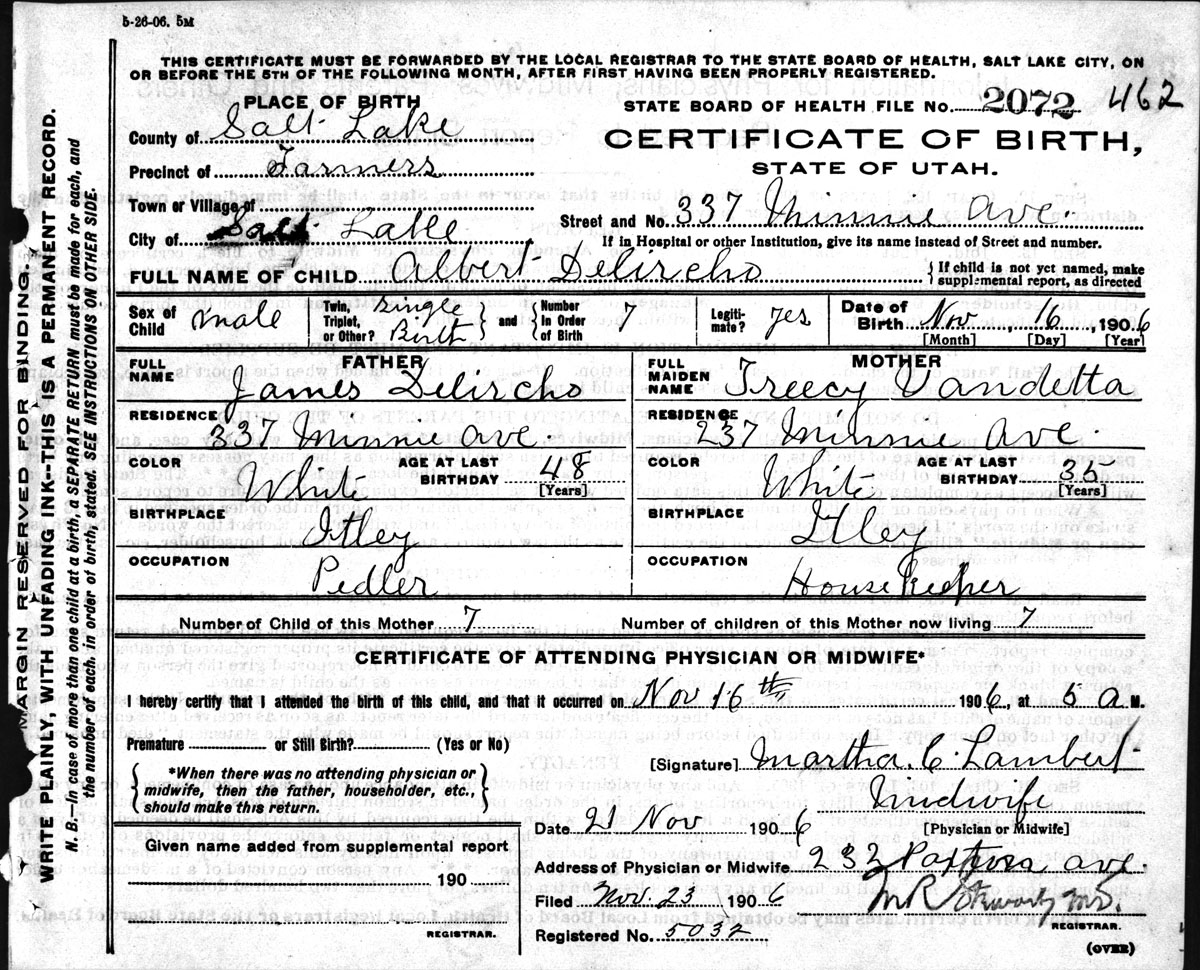 5-26-06. 5M
THIS CERTIFICATE MUST BE FORWARDED BY THE LOCAL REGISTRAR TO THE STATE BOARD OF HEALTH, SALT LAKE CITY, ON
OR BEFORE THE 5TH OF THE FOLLOWING MONTH, AFTER FIRST HAVING BEEN PROPERLY REGISTERED.
PLACE OF BIRTH
County of Salt Lake
Precinct of Farmers
Town or Village of
City of Salt Lake
STATE BOARD OF HEALTH FILE No. 2072 462
CERTIFICATE OF BIRTH,
STATE OF UTAH.
Street and No. 337 Minnie Ave.
If in Hospital or other Institution, give its name instead of Street and number.
FULL NAME OF CHILD Albert Delircho
{ If child is not yet named, make
supplemental report, as directed
Sex of Child male
Twin, Triplet, or Other? Single Birth } and { Number In Order of Birth 7
Legiti-mate? Yes
Date of Birth Nov 16, 1906
[Month] [Day] [Year]
FATHER
FULL NAME James Delircho
RESIDENCE 337 Minnie Ave.
COLOR White AGE AT LAST BIRTHDAY 48 [Years]
BIRTHPLACE Itley
OCCUPATION Pedler
MOTHER
FULL MAIDEN NAME Treecy Vandetta
RESIDENCE 237 Minnie Ave.
COLOR White AGE AT LAST BIRTHDAY 35 [Years]
BIRTHPLACE Itley
OCCUPATION House Keeper
Number of Child of this Mother 7 Number of children of this Mother now living 7
CERTIFICATE OF ATTENDING PHYSICIAN OR MIDWIFE*
I hereby certify that I attended the birth of this child, and that it occurred on Nov 16th 1906, at 5 a M.
Premature or Still Birth? (Yes or No)
{ *When there was no attending physician or
midwife, then the father, householder, etc.,
should make this return. }
Given name added from supplemental report
190
REGISTRAR.
[Signature] Martha C. Lambert
Midwife
Date 21 Nov 1906 [Physician or Midwife]
Address of Physician or Midwife 232 ave.
Filed Nov. 23 1906
REGISTRAR.
Registered No. 5032
(OVER)
MARGIN RESERVED FOR BINDING.
WRITE PLAINLY, WITH UNFADING INK--THIS IS A PERMANENT RECORD.
N. B.--In case of more than one child at a birth, a SEPARATE RETURN must be made for each, and
the number of each, in order of birth, stated. SEE INSTRUCTIONS ON OTHER SIDE.